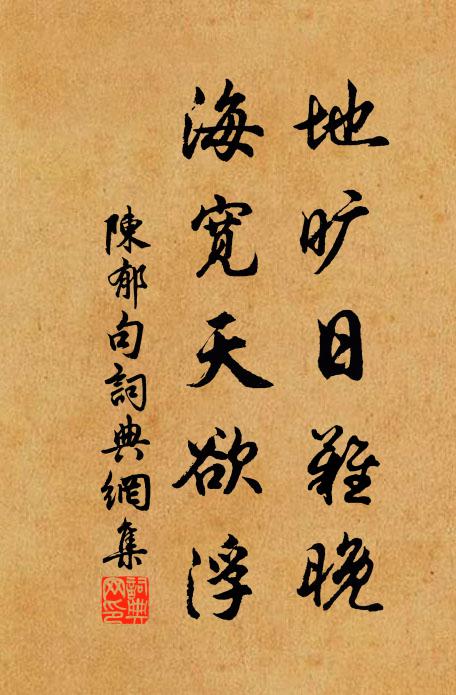 地旷日难晚
海宽天欲浮
陳郁句詞典網集
詞典网印